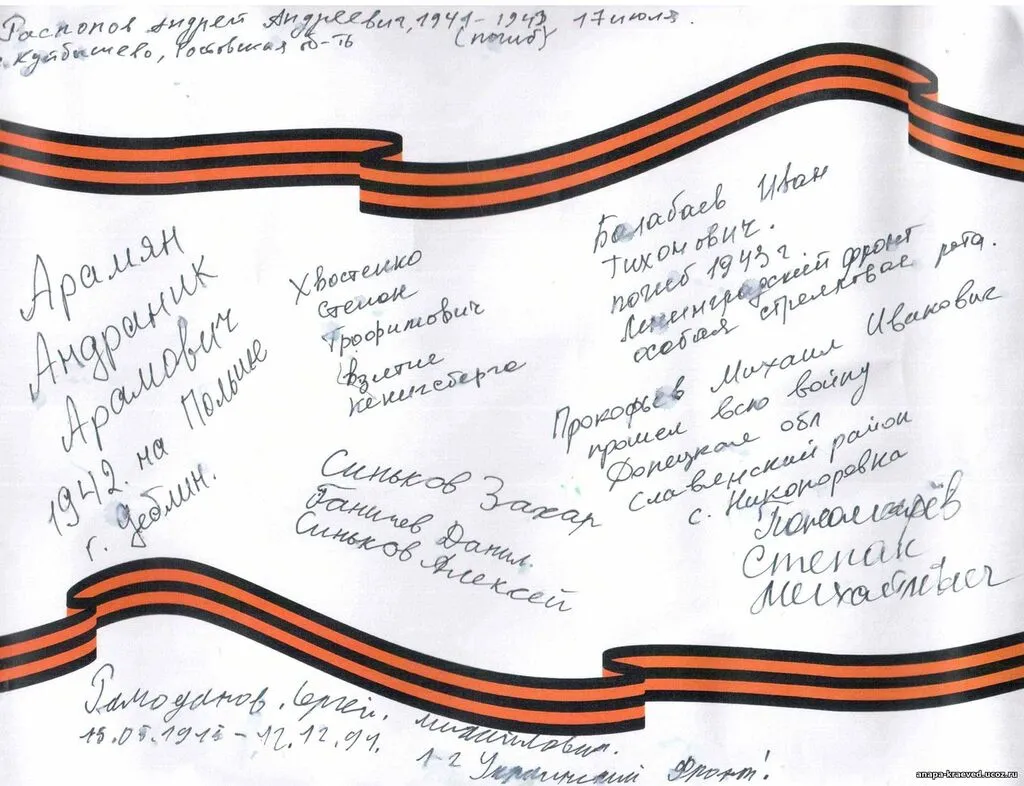 Распопов Андрей Андреевич, 1941-1943 17 июля.
(погиб)
Куйбышево, Ростовская об-ть
Арамян
Андраник
Арамович
1942. на Польше
г. Деблин.
Хвостенко
Степан
Трофимович
(взятие
Кенигсберга
Балабаев Иван
Тихонович.
погиб 1943 г
Ленинградский фронт
особая стрелковая рота.
Прокофьев Михаил Иванович
прошел всю войну
Донецкая обл
Славенский район
с. Никоноровка
Синьков Захар
Ганичев Данил.
Синьков Алексей
Пономарёв
Степан
Михайлович
Рамоданов. Сергей. Михайлович.
12.12.91.
1-й Украинский Фронт!
anapa-kraeved.ucoz.ru